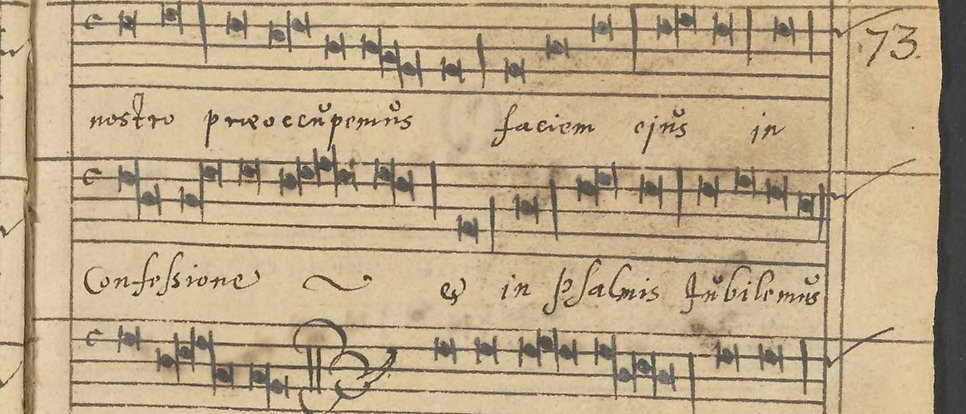 73.
nostro præoccupemus faciem ejus in
Confessione et in Psalmis Jubilemus